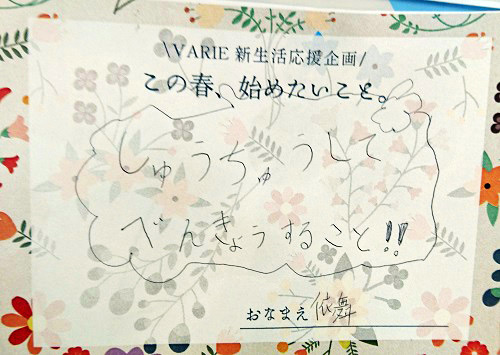 \VARIE 新生活応援企画/
この春、始めたいこと。
しゅうちゅうして
べんきょうすること!!
おなまえ 依舞